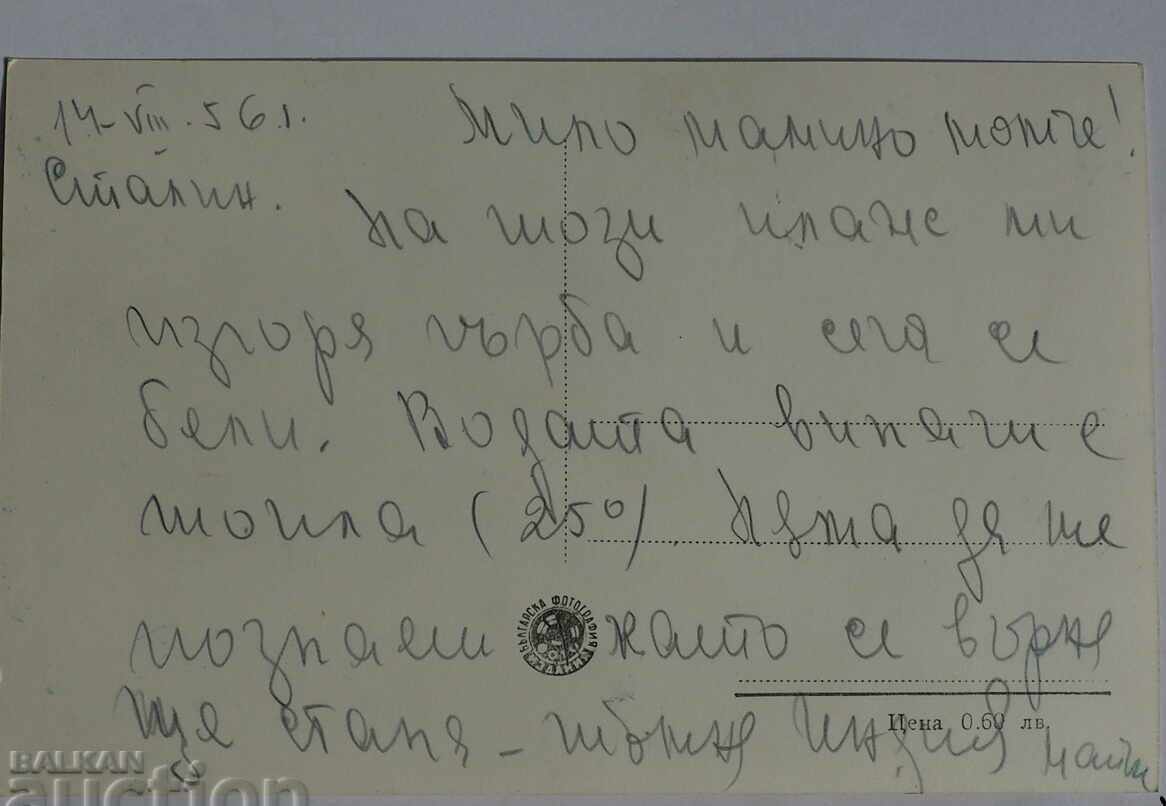 14-VIII. 56 г. Мило мамино момче!
Сталин.
На този плаж ми
изгоря гърба и сега се
бели. Водата винаги е
топла (25°). Няма да ме
познаеш като се върна
ще стана - тъмна Индия
БЪЛГАРСКА ФОТОГРАФИЯ
Цена 0.60 лв.
BALKAN
auction